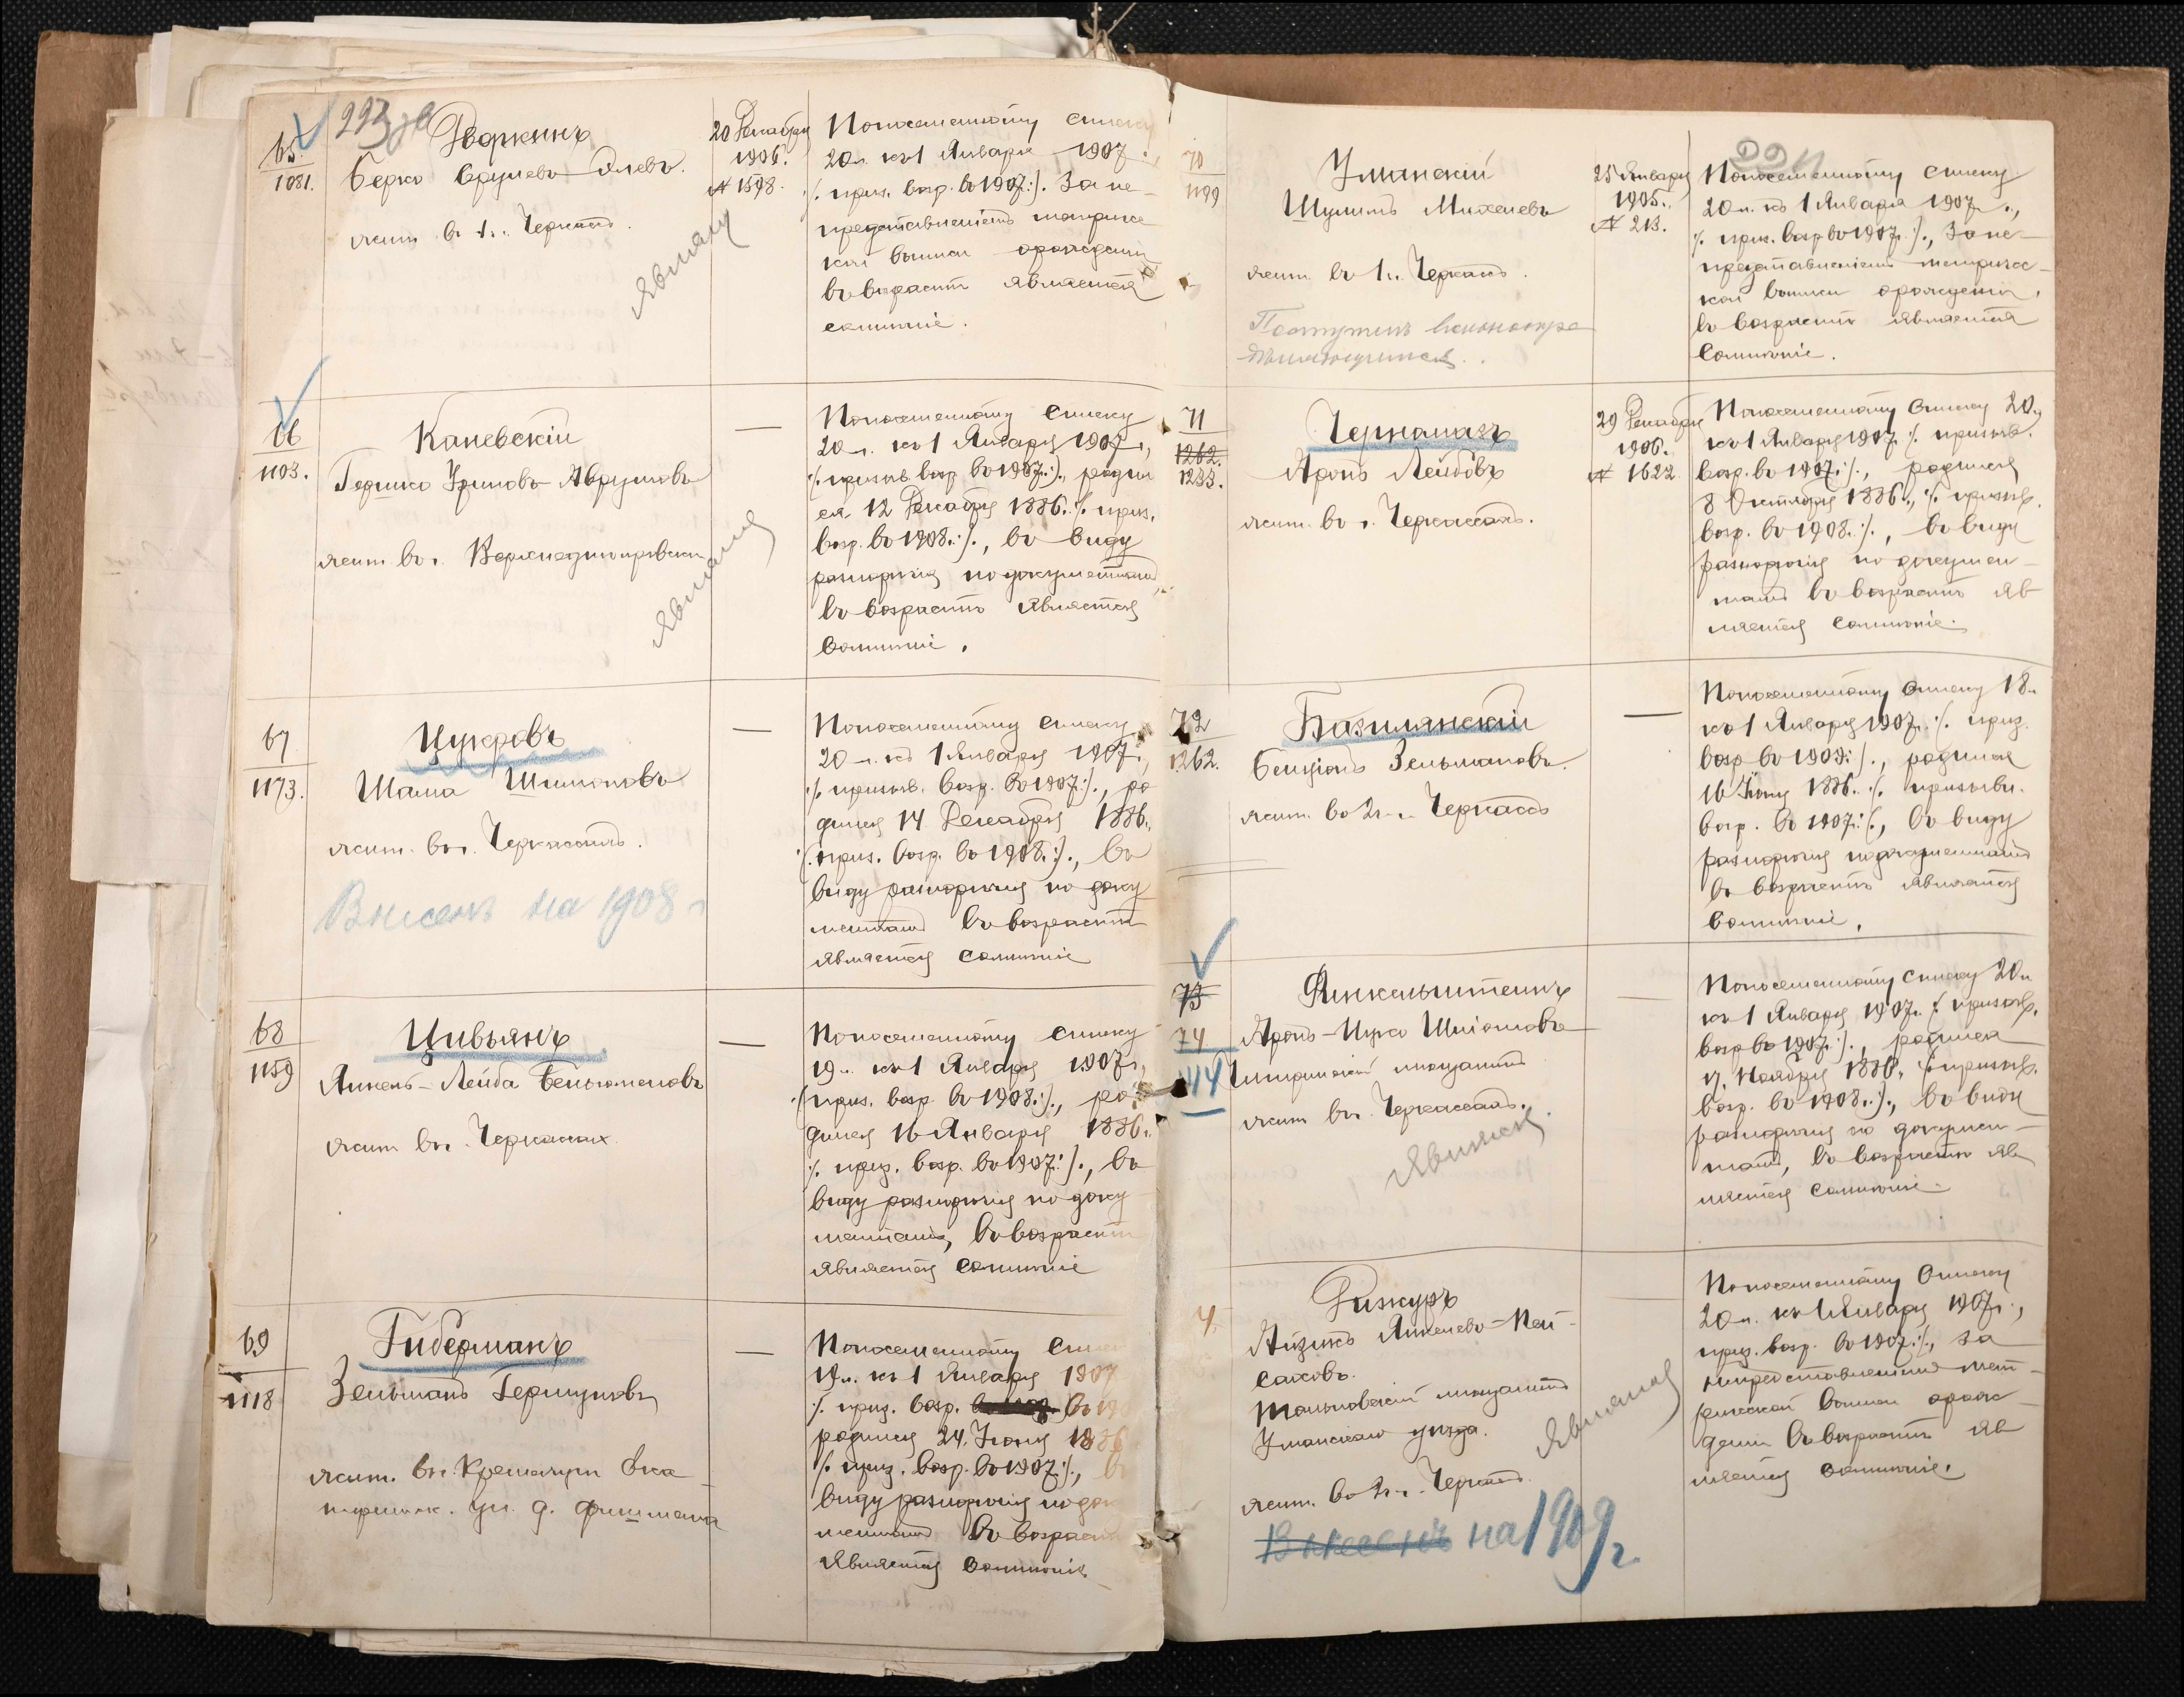 223 об
65
1081.
Дворкинъ
Берко Срулевъ-Элевъ.
жит. в г. Черкасс.
явился
20 Декабря
1906.
№ 1598.
По посемейному списку
20 л. къ 1 Января 1907 г.,
/. приз. возр. въ 1907 г. :/. За не-
представленіемъ метриче-
кой выписи о рожденіи
въ возрастѣ является
сомнѣніе.
66
1103.
Каневскій
Гершко Хаимовъ Аврумовъ
жит. въ г. Верхнеднѣпровскѣ
явился
—
По посемейному списку
20 л. къ 1 Января 1907 г.,
/. призыв. возр. въ 1907 г. :/., родил
ся 12 Декабря 1886 г. /. приз.
возр. въ 1908 г. :/., въ виду
разнорѣчія по документамъ
въ возрастѣ является
сомнѣніе.
67
1173.
Цукровъ
Шама Шимоновъ
жит. въ г. Черкассахъ.
Внесенъ на 1908 г
—
По посемейному списку
20 л. къ 1 Января 1907 г.,
/. призыв. возр. въ 1907 :/., ро
дился 14 Декабря 1886 г.,
/. приз. возр. въ 1908 г. :/., въ
виду разнорѣчія по доку
ментамъ въ возрастѣ
является сомнѣніе
68
1159
Цивьянъ
Янкель-Лейба Беньюменовъ
жит. въ г. Черкасахъ
—
По посемейному списку
19 л. къ 1 Января 1907 г.,
/. приз. возр. въ 1908 г. :/., ро
дился 16 Января 1886 г.
/. приз. возр. въ 1907 г. :/., въ
виду разнорѣчія по доку
ментамъ, въ возрастѣ
является сомнѣніе
69
1118
Гиберманъ
Зельманъ Гершуновъ
жит. въ г. Кременчугѣ Ека
терин. ул. д. Фишмана
—
По посемейному спис
19 л. къ 1 Января 1907
/. приз. возр. въ 190
родился 24 Іюня 1886
/. приз. возр. въ 1907 :/., въ
виду разнорѣчія по док
ментамъ въ возрастѣ
является сомнѣніе
224
70
1199
Уманскій
Шулимъ Михелевъ
жит. въ г. Черкасс.
25 Января
1905 г.
№ 213.
По посемейному списку
20 л. къ 1 Января 1907 г.,
/. приз. возр. въ 1907 г. :/., За не-
представленіемъ метриче-
кой выписи о рожденіи,
въ возрастѣ является
сомнѣніе.
71
1262.
1233.
Черномазъ
Аронъ Лейбовъ
жит. въ г. Черкассахъ.
29 Декабря
1906.
№ 1622
По посемейному списку 20 л.
къ 1 Января 1907 г. /. призыв.
возр. въ 1907 г. :/., родился
8 Октября 1886 г., /. призыв.
возр. въ 1908 г. :/., въ виду
разнорѣчія по докумен-
тамъ въ возрастѣ яв
ляется сомнѣніе.
72
1262.
Базилянскій
Бенціонъ Зельмановъ.
жит. въ г. Черкассъ
—
По посемейному списку 18 л.
къ 1 Января 1907 г. /. приз.
возр. въ 1909 :/., родился
16 Іюня 1886 г. /. призывн.
возр. въ 1907 г. :/., въ виду
разнорѣчія по документамъ
въ возрастѣ является
сомнѣніе.
73
74
Финкельштейнъ
Аронъ-Ицко Шліомовъ
Чигиринскій мѣщанинъ
жит. въ г. Черкассахъ.
явился
По посемейному списку 20 л
къ 1 Января 1907 г. /. призыв.
возр. въ 1907 г. :/., родился
17 Ноября 1886 г. /. призыв.
возр. въ 1908 г. :/., въ виду
разнорѣчія по докумен-
тамъ, въ возрастѣ яв
ляется сомнѣніе.
Айзикъ Янкелевъ-Пей-
саховъ.
Тальновскій мѣщанинъ
Уманскаго уѣзда.
жит. въ г. Черкасс.
явился
Внесенъ на 1909 г.
По посемейному списку
20 л. къ 1 Января 1907 г.,
приз. возр. въ 1907 г. :/., за
непредставленіемъ мет-
рической выписи о рож-
деніи въ возрастѣ яв
ляется сомнѣніе.